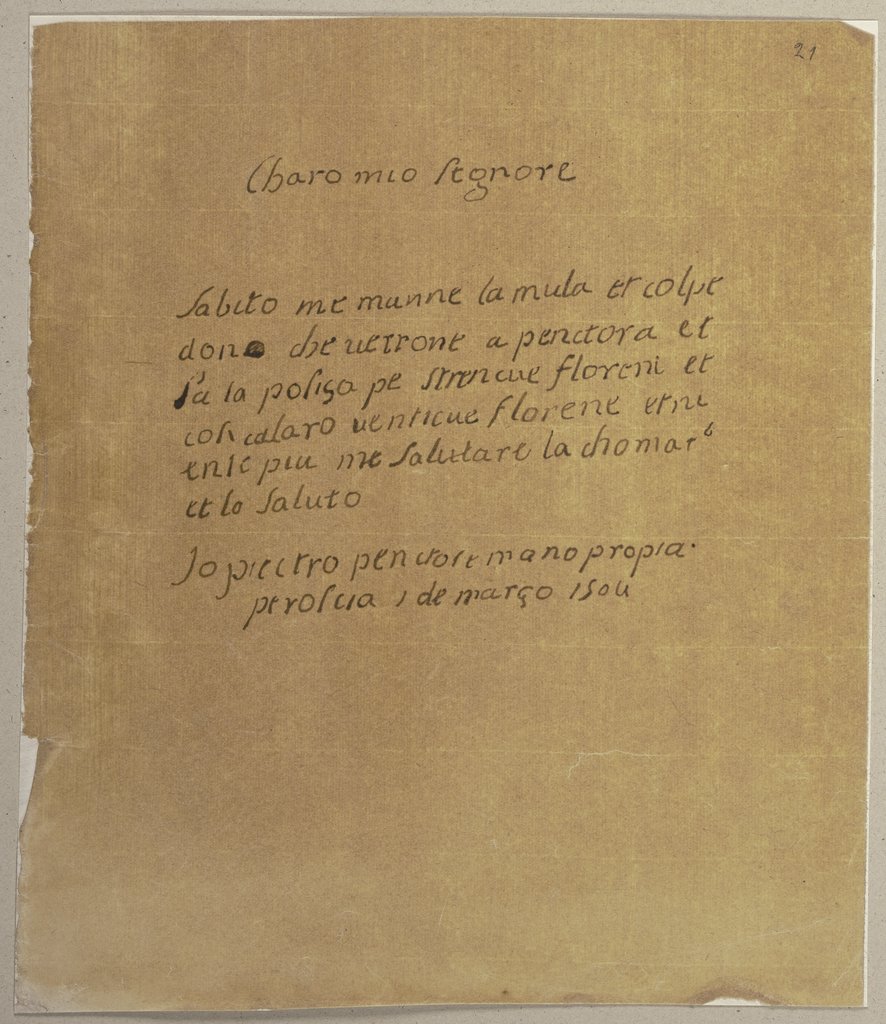 21
Charo mio segnore
Sabito me manne la mula et colpe
dono che verrone a penctora et
fa la poliça pe strencue floreni et
cosi calaro venticue florene et ni
ente piu me salutare la chomar
et lo saluto
Jo piectro penctore mano propia.
peroscia 1 de março